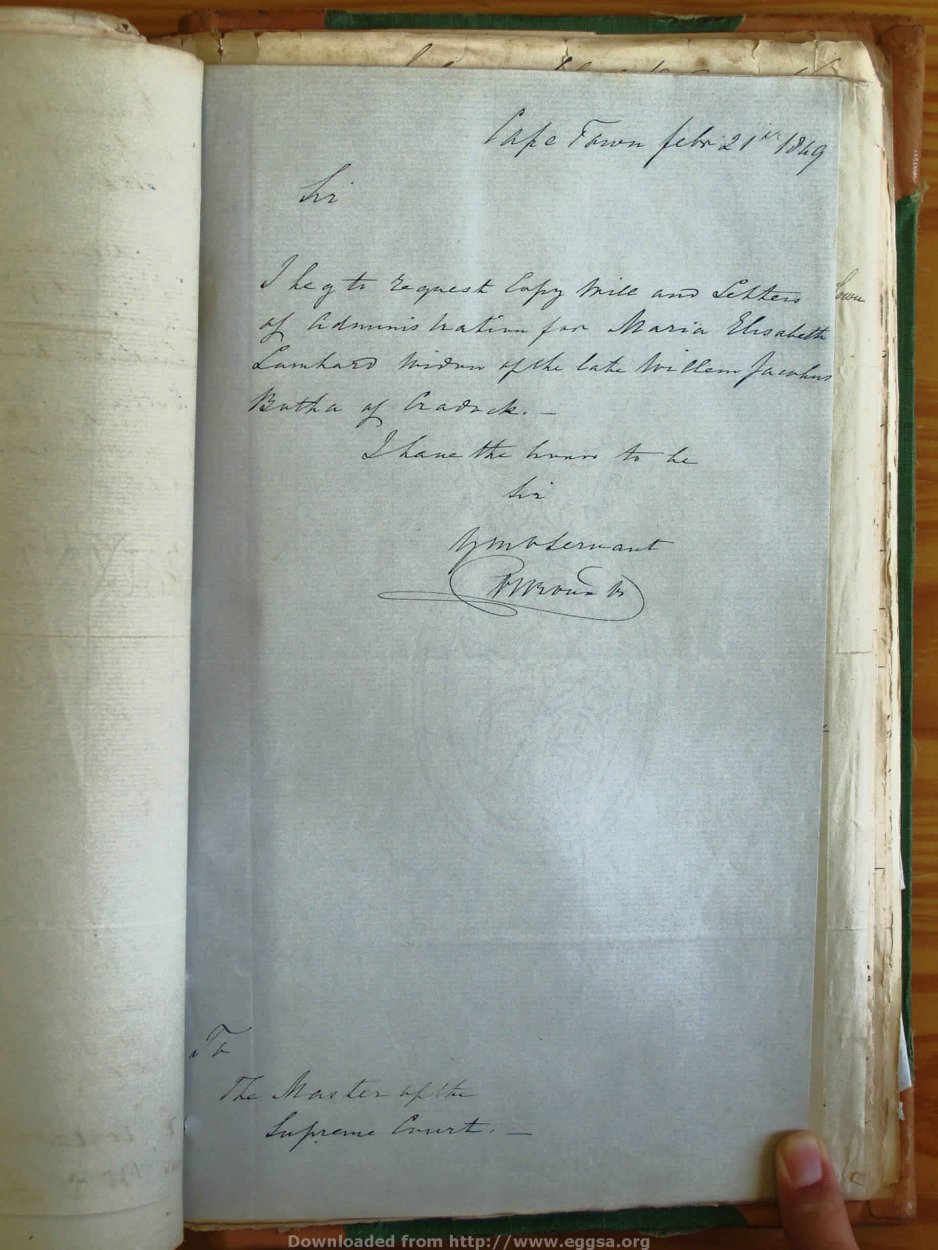 Cape Town febr 21st 1849
Sir
I beg to request Copy Will and Letters
of Administration for Maria Elisabeth
Lombard Widow of the late Willem Jacobus
Botha of Cradock. —
I have the honor to be
Sir
Servant
To
The Master of the
Supreme Court. —
Downloaded from http://www.eggsa.org